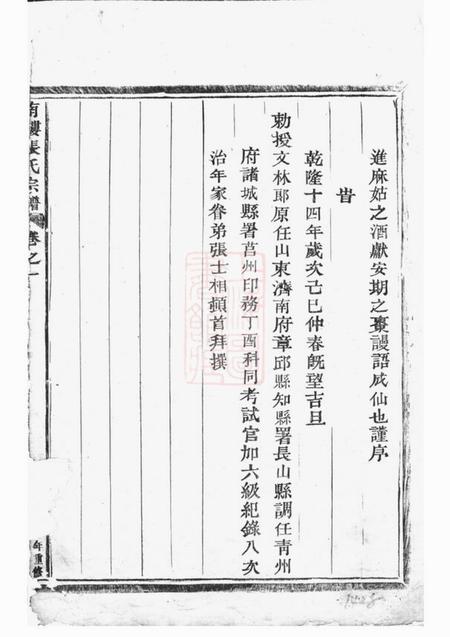 進麻姑之酒獻安期之棗謾語成仙也謹序
旹
乾隆十四年歲次己巳仲春旣望吉旦
勅授文林郎原任山東濟南府章邱縣知縣署長山縣調任青州
府諸城縣署莒州印務丁酉科同考試官加六級紀錄八次
治年家眷弟張士相頓首拜撰
張氏宗譜
卷之一
年重修